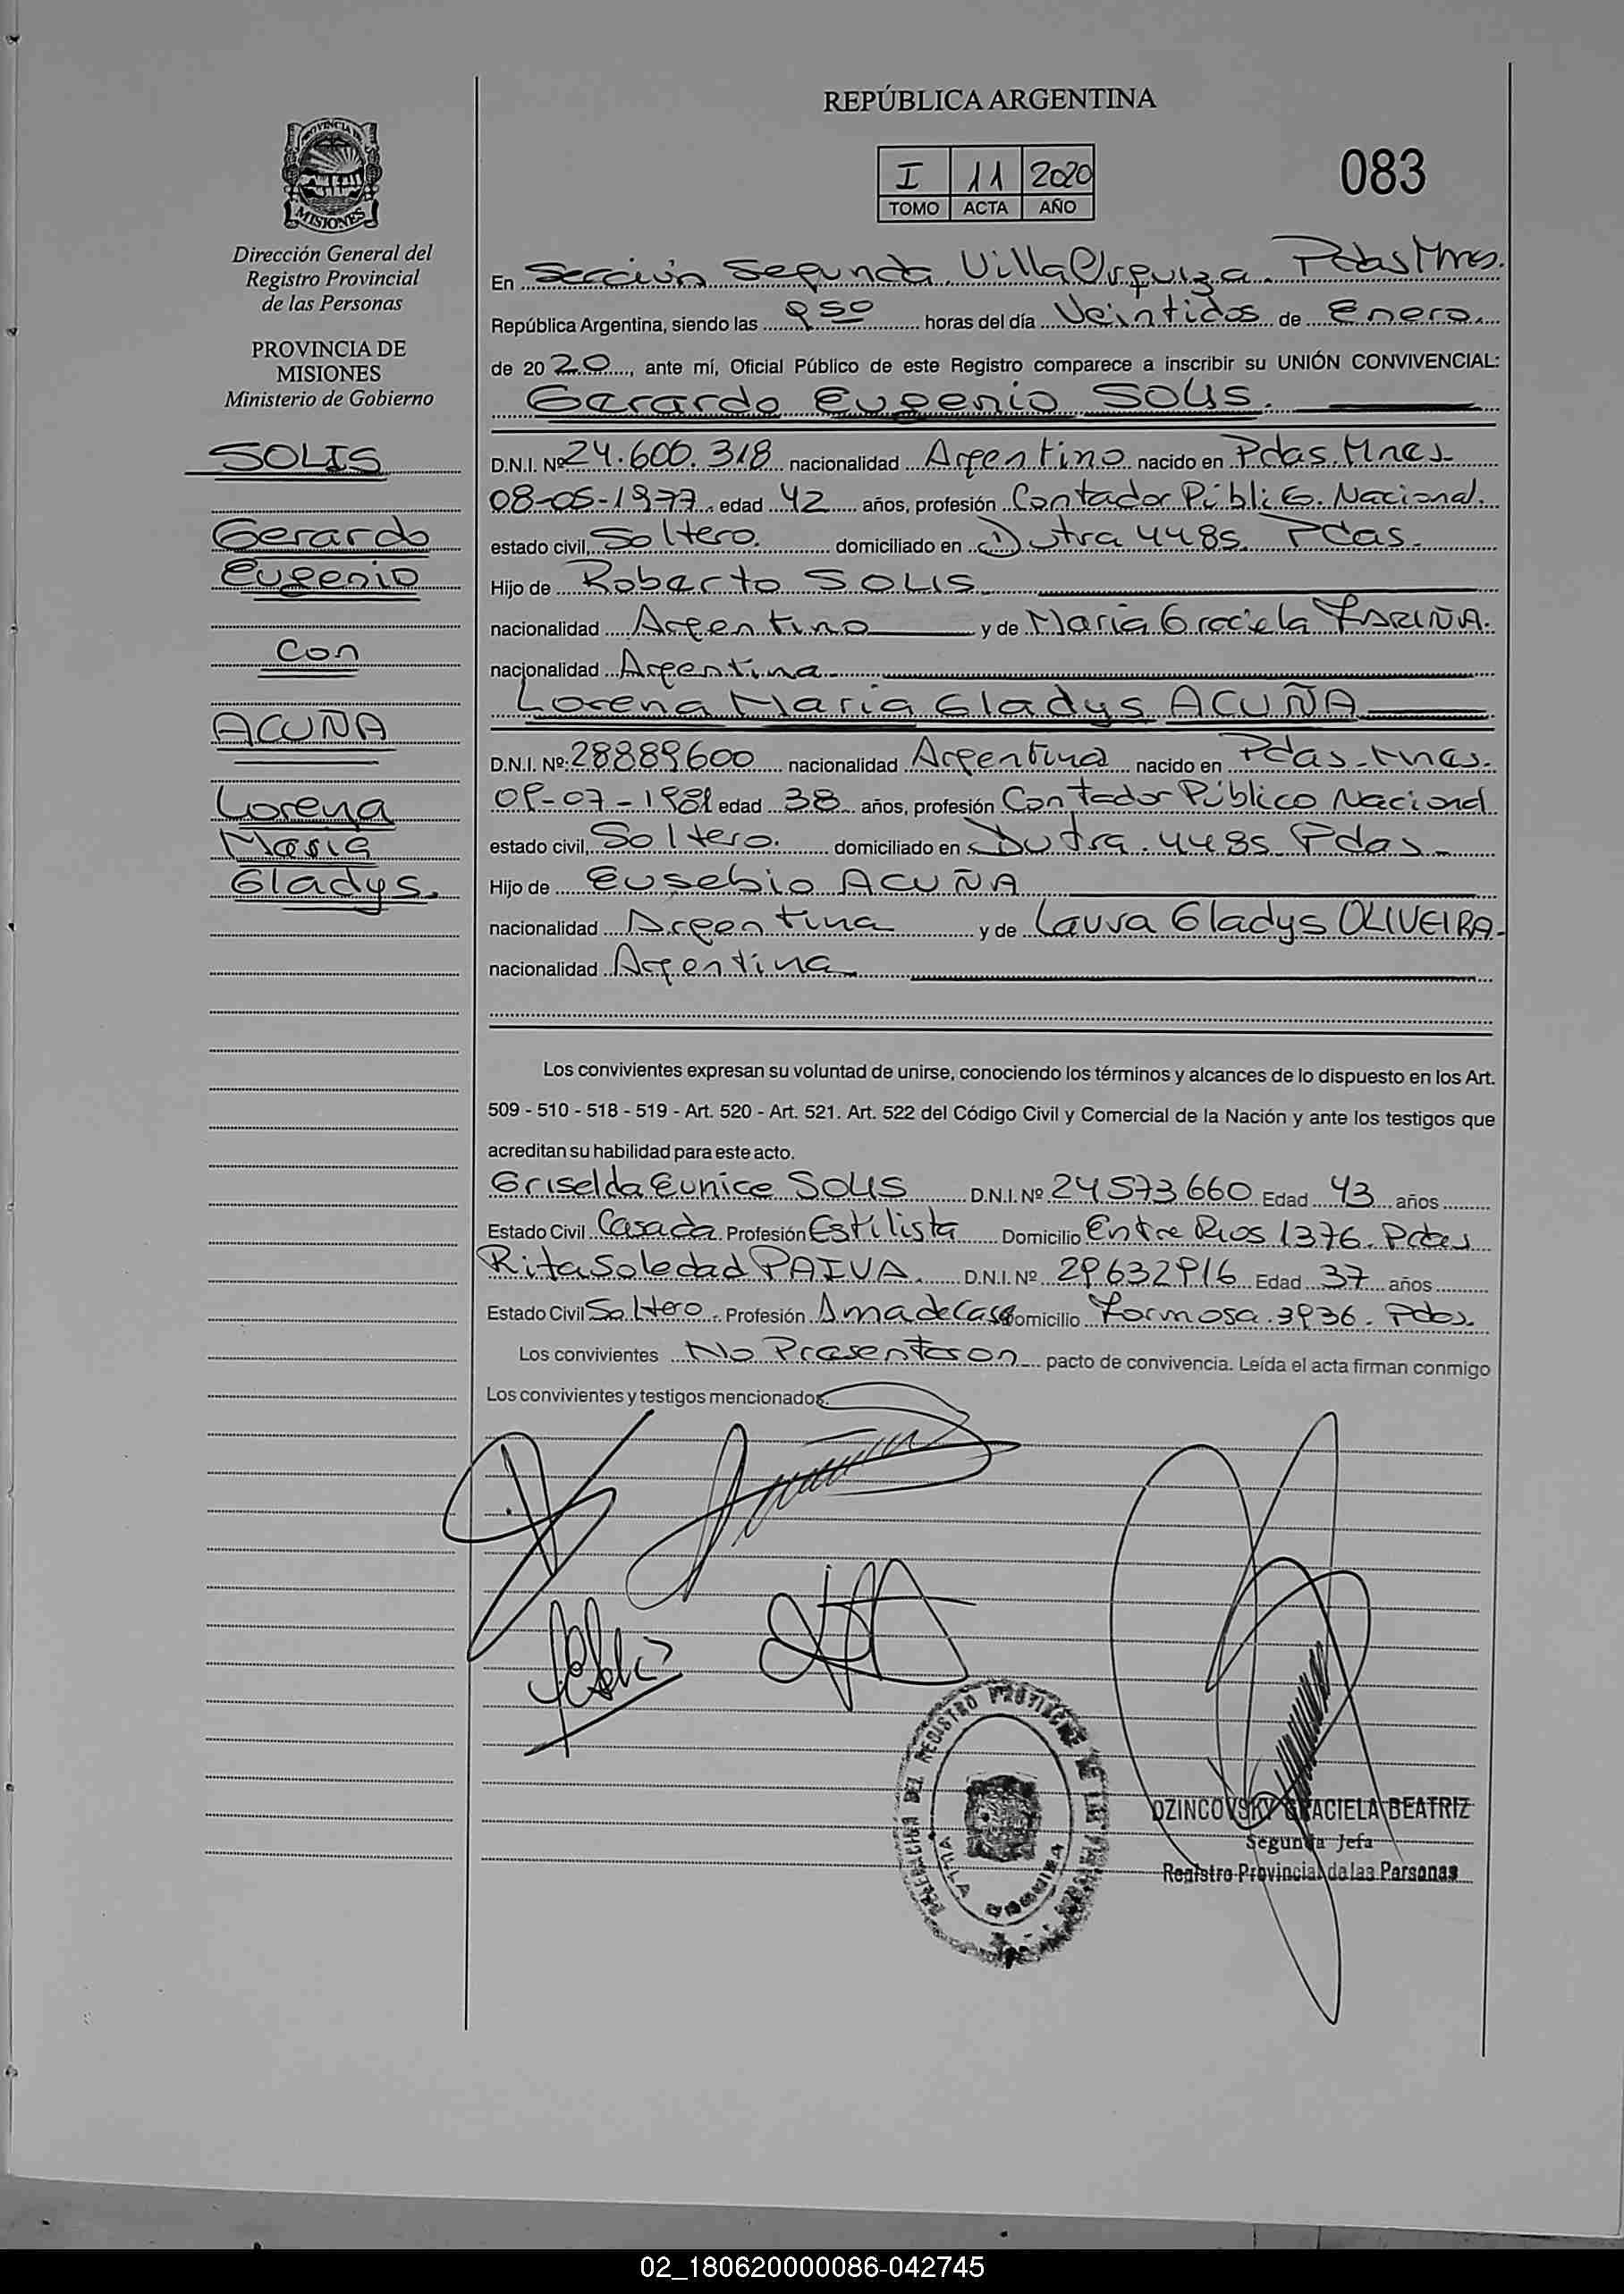 REPÚBLICA ARGENTINA
I 11 2020
TOMO ACTA AÑO
083
PROVINCIA DE
MISIONES
Dirección General del
Registro Provincial
de las Personas
PROVINCIA DE
MISIONES
Ministerio de Gobierno
SOLIS
Gerardo
Eugenio
Con
ACUÑA
Lorena
Maria
Gladys.
En Sección Segunda Villa Urquiza Pdas Mnes.
República Argentina, siendo las 9 50 horas del día Veintidos de Enero
de 2020, ante mí, Oficial Público de este Registro comparece a inscribir su UNIÓN CONVIVENCIAL:
Gerardo Eugenio SOLIS.
D.N.I. Nº 24.600.318 nacionalidad Argentino nacido en Pdas Mnes
08-05-1977 edad 42 años, profesión Contador Público Nacional.
estado civil, Soltero. domiciliado en Dutra 4485 Pdas.
Hijo de Roberto SOLIS
nacionalidad Argentino y de Maria Graciela FARIÑA.
nacionalidad Argentina
Lorena Maria Gladys ACUÑA
D.N.I. Nº: 28889600 nacionalidad Argentina nacido en Pdas-Mnes.
09-07-1981 edad 38 años, profesión Contador Público Nacional
estado civil, Soltero. domiciliado en Dutra 4485 Pdas
Hijo de Eusebio ACUÑA
nacionalidad Argentina y de Laura Gladys OLIVEIRA
nacionalidad Argentina
Los convivientes expresan su voluntad de unirse, conociendo los términos y alcances de lo dispuesto en los Art.
509 - 510 - 518 - 519 - Art. 520 - Art. 521. Art. 522 del Código Civil y Comercial de la Nación y ante los testigos que
acreditan su habilidad para este acto.
Griselda Eunice SOLIS D.N.I. Nº 24573660 Edad 43 años
Estado Civil Casada Profesión Estilista Domicilio Entre Rios 1376. Pdas
Rita Soledad PAIVA. D.N.I. Nº 29632916 Edad 37 años
Estado Civil Soltero Profesión Ama de Casa Domicilio Formosa 3936. Pdas.
Los convivientes No Presentaron pacto de convivencia. Leída el acta firman conmigo
Los convivientes y testigos mencionados.
DELEGACION DEL REGISTRO PROVINCIAL DE LAS PERSONAS
VILLA URQUIZA
DZINCOVSKY GRACIELA BEATRIZ
Segunda Jefa
Registro Provincial de las Personas
02_180620000086-042745